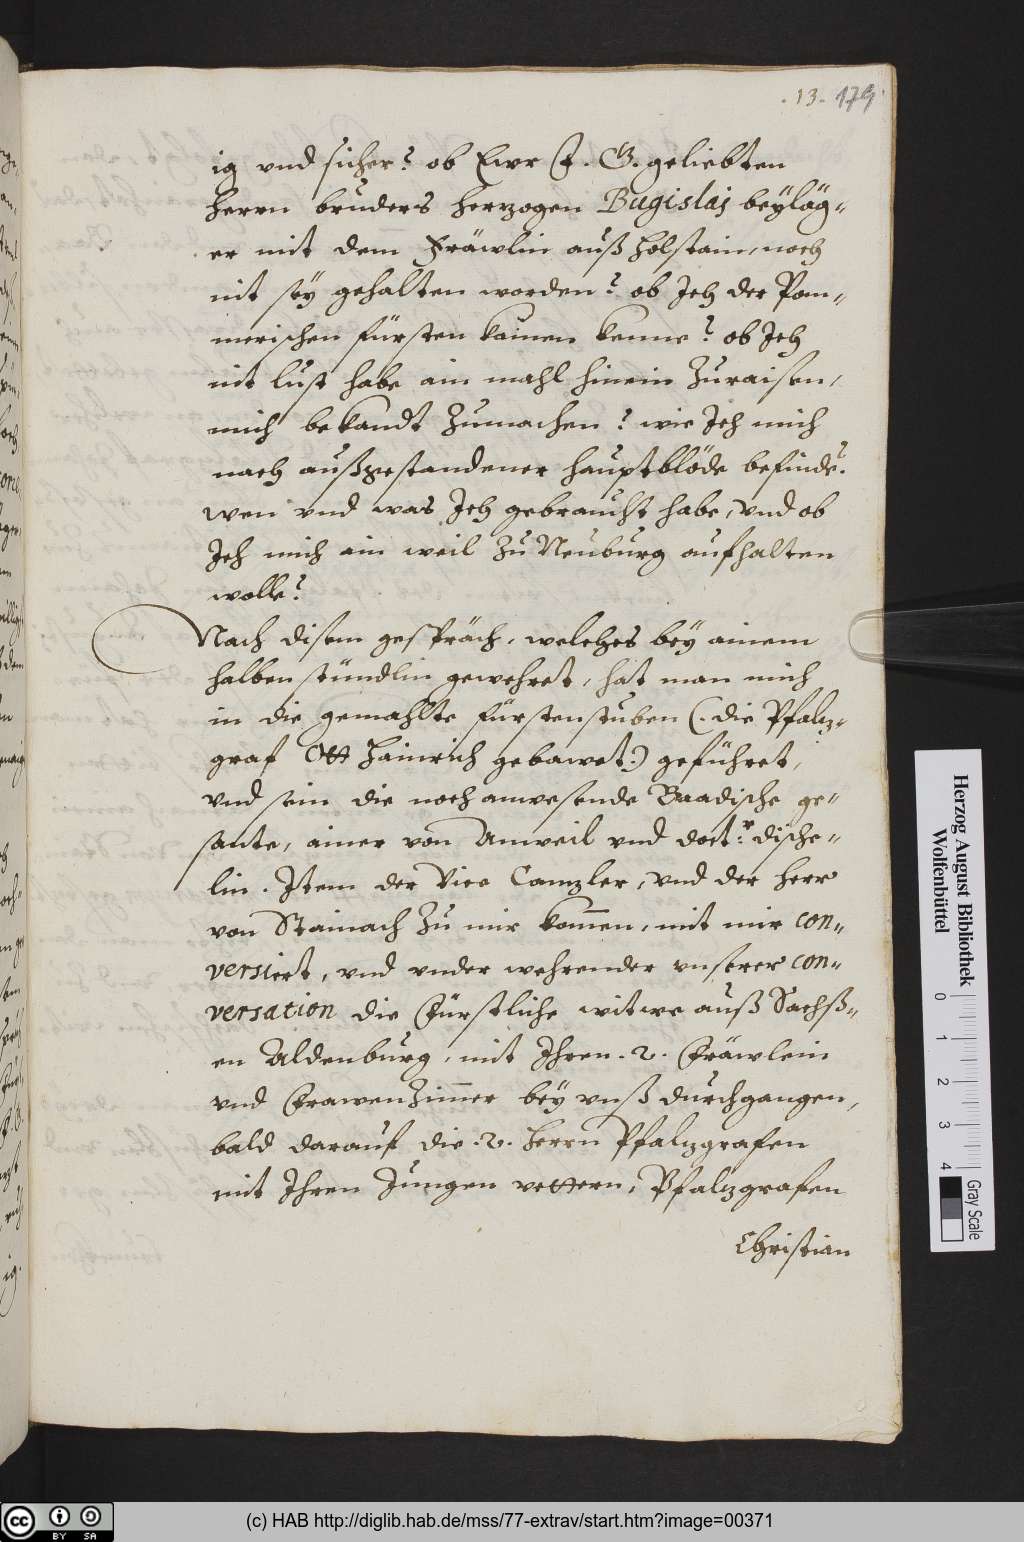 .13. 179
ig vnd sicher? ob Ewr F. G. geliebten
herrn bruders herzogen Bugislai beÿläg-
er mit dem Fräwlin auß Holstain, noch
nit seÿ gehalten worden? ob Ich der Pom-
merischen fürsten kainen kenne? ob Ich
nit lust habe ain mahl hinein Zuraisen,
mich bekandt Zumachen? wie Ich mich
nach außgestandener hauptblöde befinde?
wen vnd was Ich gebraucht habe, vnd ob
Ich mich ain weil Zu Neuburg aufhalten
wolle?
Nach disem gespräch, welches beÿ ainem
halben stündlin gewehret, hat man mich
in die gemahlte fürstenstuben (. die Pfalz-
graf Ott Hainrich gebawet:) geführet,
vnd sein die noch anwesende Baadische ge-
sante, ainer von Anweil vnd doct:r dische-
lin. Item der Vice Canzler, vnd der herr
von Stainach Zu mir kom̄en, mit mir con-
versiert, vnd vnder wehrender vnserer con-
versation die Fürstliche witwe auß Sachß-
en Aldenburg, mit Ihren .2. Fräwlein
vnd Frawenzim̄er beÿ vnß durchgangen,
bald darauf die .2. herrn Pfalzgrafen
mit Ihren Jungen vettern, Pfalzgrafen
Christian
Herzog August Bibliothek
Wolfenbüttel
0 1 2 3 4
Gray Scale
(c) HAB http://diglib.hab.de/mss/77-extrav/start.htm?image=00371
cc BY SA